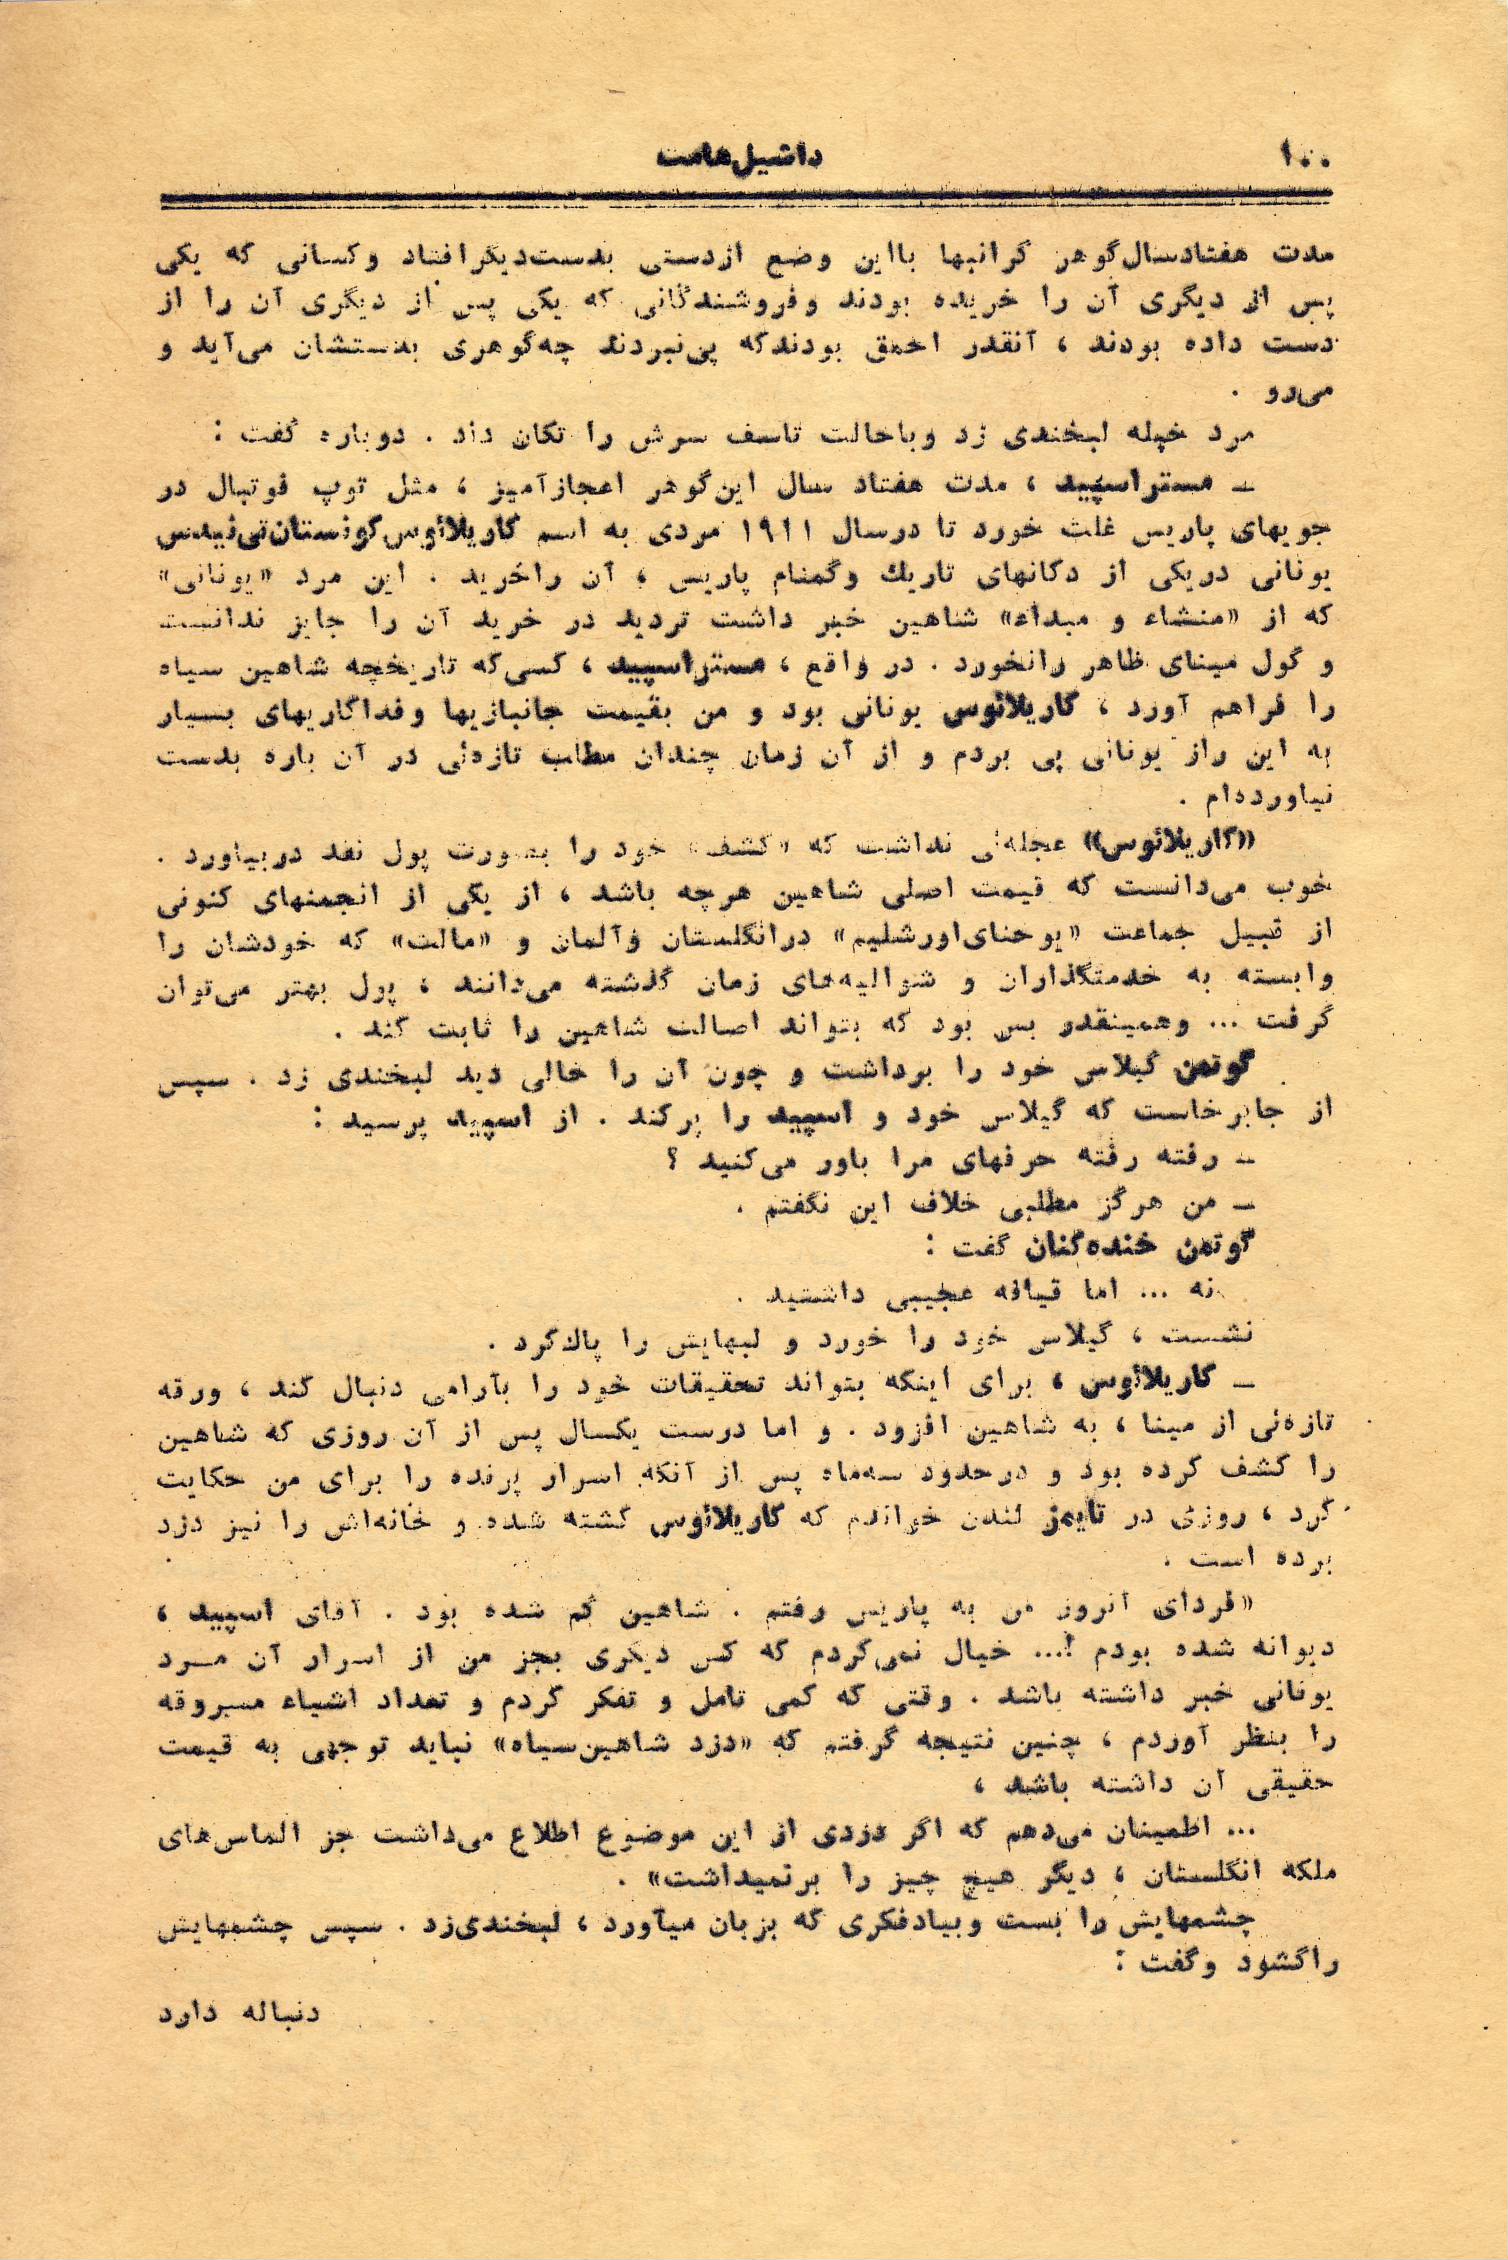 ۱۰۰
داشیل‌هامت
مدت هفتادسال‌گوهر گرانبها بااین وضع ازدستی بدست‌دیگرافتاد وکسانی که یکی
پس از دیگری آن را خریده بودند وفروشندگانی که یکی پس از دیگری آن را از
دست داده بودند ، آنقدر احمق بودندکه پی‌نبردند چه‌گوهری بدستشان می‌آید و
می‌رو .
مرد خپله لبخندی زد وباحالت تاسف سرش را تکان داد . دوباره گفت :
ــ مستراسپید ، مدت هفتاد سال این‌گوهر اعجازآمیز ، مثل توپ فوتبال در
جویهای پاریس غلت خورد تا درسال ۱۹۱۱ مردی به اسم کاریلائوس‌کونستان‌تی‌نیدس
یونانی دریکی از دکانهای تاریك وگمنام پاریس ، آن راخرید . این مرد «یونانی»
که از «منشاء و مبداء» شاهین خبر داشت تردید در خرید آن را جایز ندانست
و گول مینای ظاهر رانخورد . در واقع ، مستراسپید ، کسی‌که تاریخچه شاهین سیاه
را فراهم آورد ، کاریلائوس یونانی بود و من بقیمت جانبازیها وفداکاریهای بسیار
به این راز یونانی پی بردم و از آن زمان چندان مطلب تازه‌ئی در آن باره بدست
نیاورده‌ام .
«کاریلائوس» عجله‌ئی نداشت که «کشف» خود را بصورت پول نقد دربیاورد .
خوب می‌دانست که قیمت اصلی شاهین هرچه باشد ، از یکی از انجمنهای کنونی
از قبیل جماعت «یوحنای‌اورشلیم» درانگلستان وآلمان و «مالت» که خودشان را
وابسته به خدمتگذاران و شوالیه‌های زمان گذشته می‌دانند ، پول بهتر می‌توان
گرفت ... وهمینقدر بس بود که بتواند اصالت شاهین را ثابت کند .
گوتمن گیلاس خود را برداشت و چون آن را خالی دید لبخندی زد . سپس
از جابرخاست که گیلاس خود و اسپید را پرکند . از اسپید پرسید :
ــ رفته رفته حرفهای مرا باور می‌کنید ؟
ــ من هرگز مطلبی خلاف این نگفتم .
گوتمن خنده‌کنان گفت :
نه ... اما قیافه عجیبی داشتید .
نشست ، گیلاس خود را خورد و لبهایش را پاك‌کرد .
ــ کاریلائوس ، برای اینکه بتواند تحقیقات خود را بآرامی دنبال کند ، ورقه
تازه‌ئی از مینا ، به شاهین افزود . و اما درست یکسال پس از آن روزی که شاهین
را کشف کرده بود و درحدود سه‌ماه پس از آنکه اسرار پرنده را برای من حکایت
کرد ، روزی در تایمز لندن خواندم که کاریلائوس کشته شده و خانه‌اش را نیز دزد
برده است .
«فردای آنروز من به پاریس رفتم . شاهین گم شده بود . آقای اسپید ،
دیوانه شده بودم !... خیال نمی‌کردم که کس دیگری بجز من از اسرار آن مــرد
یونانی خبر داشته باشد . وقتی که کمی تامل و تفکر کردم و تعداد اشیاء مسروقه
را بنظر آوردم ، چنین نتیجه گرفتم که «دزد شاهین‌سیاه» نباید توجهی به قیمت
حقیقی آن داشته باشد ،
... اطمینان می‌دهم که اگر دزدی از این موضوع اطلاع می‌داشت جز الماس‌های
ملکه انگلستان ، دیگر هیچ چیز را برنمیداشت» .
چشمهایش را بست وبیادفکری که بزبان میآورد ، لبخندی‌زد . سپس چشمهایش
راگشود وگفت :
دنباله دارد